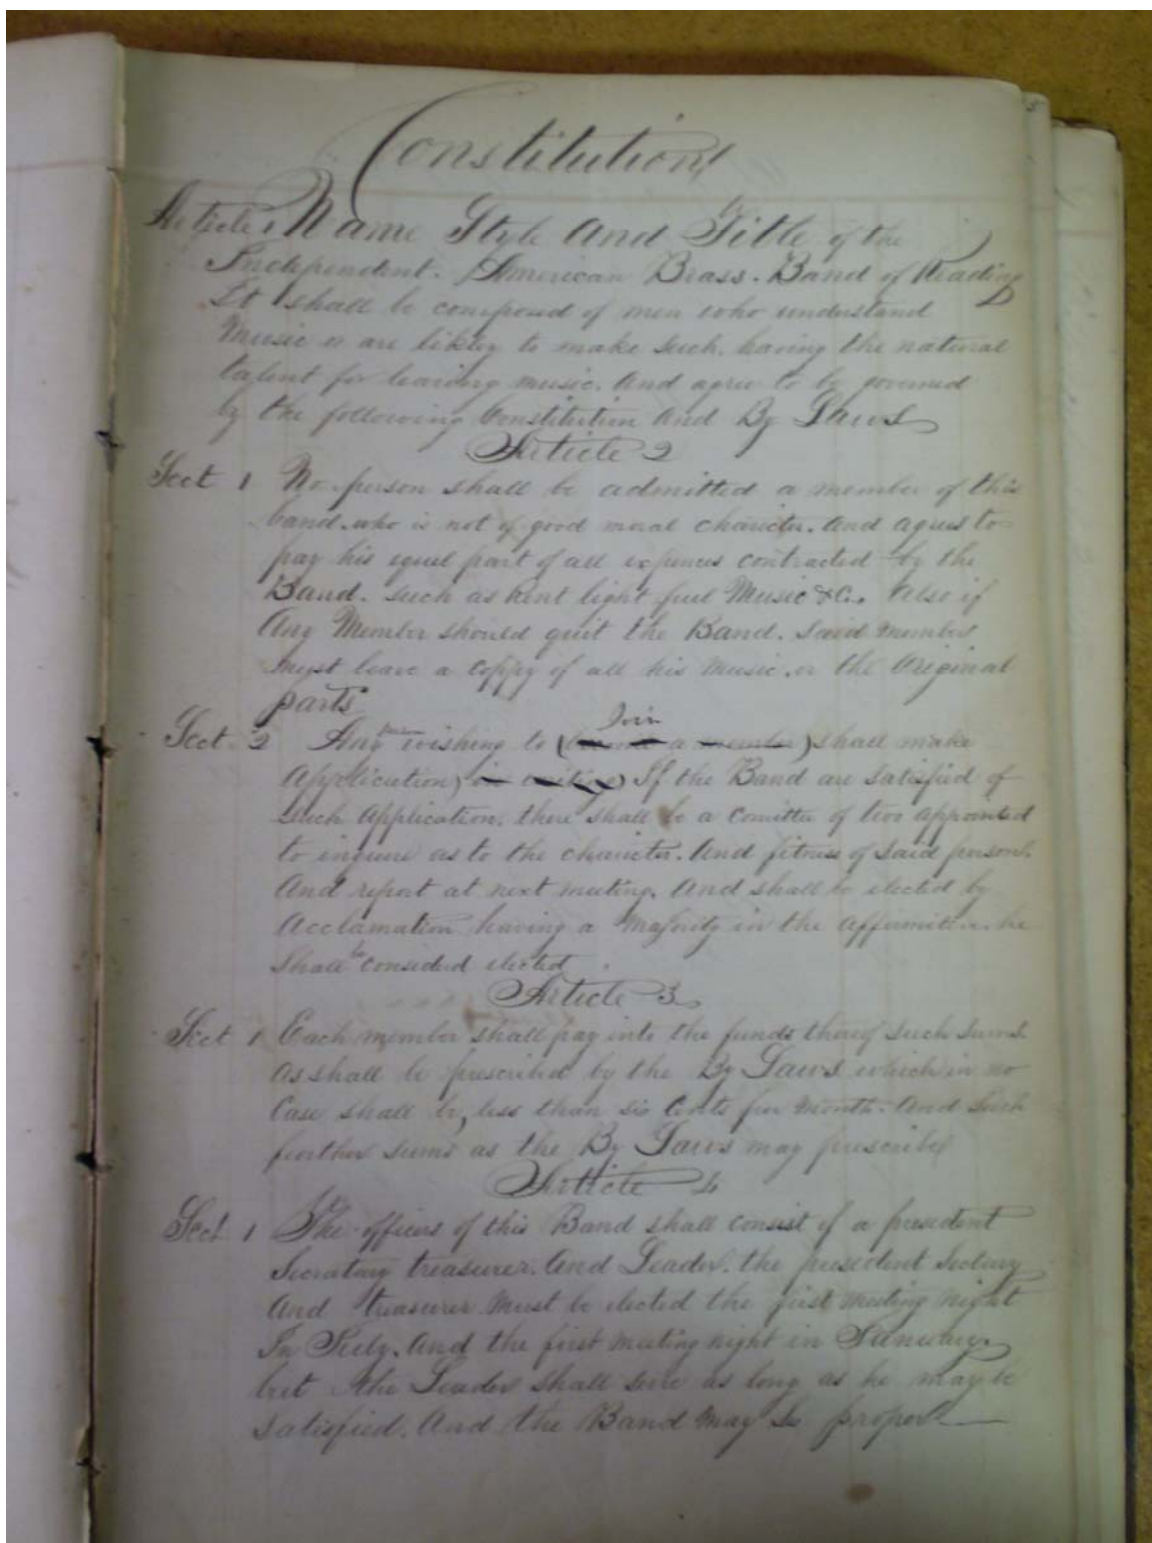 Constitution
Article 1 Name Style And Title of the
Independent. American Brass. Band of Reading
It shall be composed of men who understand
Music or are likley to make such. having the natural
talent for learing music. And agree to be governed
by the following Constitution And By Laws
Article 2
Sect 1 No person shall be admitted a member of this
band. who is not of good moral charicter. And agrees to
pay his equel part of all expences contracted by the
Band. Such as Rent light fuel Music &c. Also if
Any Member should quit the Band. Said Member
Must leave a Coppy of all his Music. or the Original
parts
Join
Sect. 2 Any person wishing to (become a member) shall make
Application) in writing) If the Band are Satisfied of
Such Application. there shall be a Comittee of two Appointed
to inquire as to the charicter. And fitness of Said person.
And report at next meeting. And shall be elected by
Acclamation having a Majority in the Affirmitive. he
Shall be considerd elected
Article 3
Sect 1 Each member shall pay into the funds thereof Such Sums.
As shall be prescribed by the By Laws which in no
Case shall be, less than six Cents per Month. And Such
further sums as the By Laws may prescribe
Article 4
Sect 1 The officers of this Band shall consist of a president
Secratary treasurer. And Leader. the president
And treasurer Must be elected the first Meeting Night
In July. And the first Meeting night in January.
but the Leader shall serve as long as he may be
Satisfied. And the Band May See proper